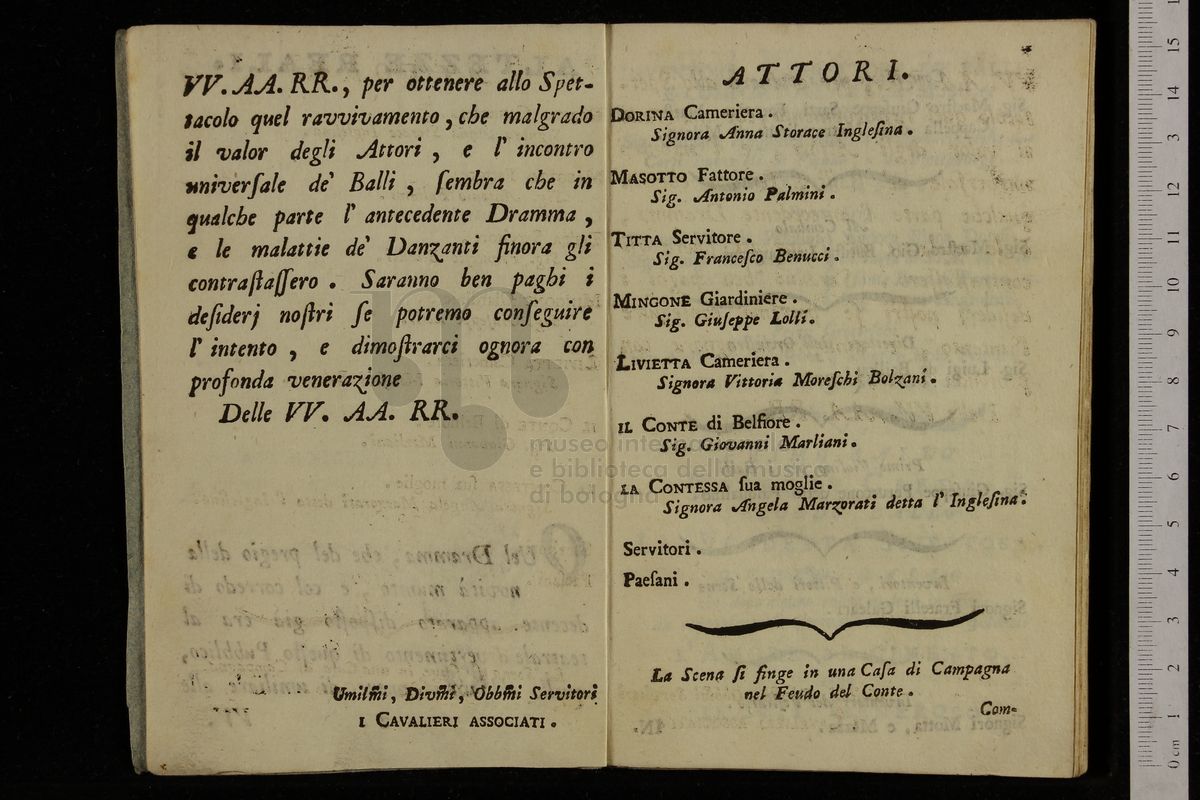 VV. AA. RR., per ottenere allo Spet-
tacolo quel ravvivamento, che malgrado
il valor degli Attori, e l' incontro
univerſale de' Balli, ſembra che in
qualche parte l' antecedente Dramma,
e le malattie de' Danzanti finora gli
contraſtaſſero. Saranno ben paghi i
deſiderj noſtri ſe potremo conſeguire
l' intento, e dimoſtrarci ognora con
profonda venerazione
Delle VV. AA. RR.
Umilm̃i, Divm̃i, Obbm̃i Servitori
I CAVALIERI ASSOCIATI.
ATTORI.
DORINA Cameriera.
Signora Anna Storace Ingleſina.
MASOTTO Fattore.
Sig. Antonio Palmini.
TITTA Servitore.
Sig. Franceſco Benucci.
MINGONE Giardiniere.
Sig. Giuſeppe Lolli.
LIVIETTA Cameriera.
Signora Vittoria Moreſchi Bolzani.
IL CONTE di Belfiore.
Sig. Giovanni Marliani.
LA CONTESSA ſua moglie.
Signora Angela Marzorati detta l' Ingleſina.
Servitori.
Paeſani.
La Scena ſi finge in una Caſa di Campagna
nel Feudo del Conte.
Com-
museo internazionale
e biblioteca della musica
di bologna
0 cm 1 2 3 4 5 6 7 8 9 10 11 12 13 14 15